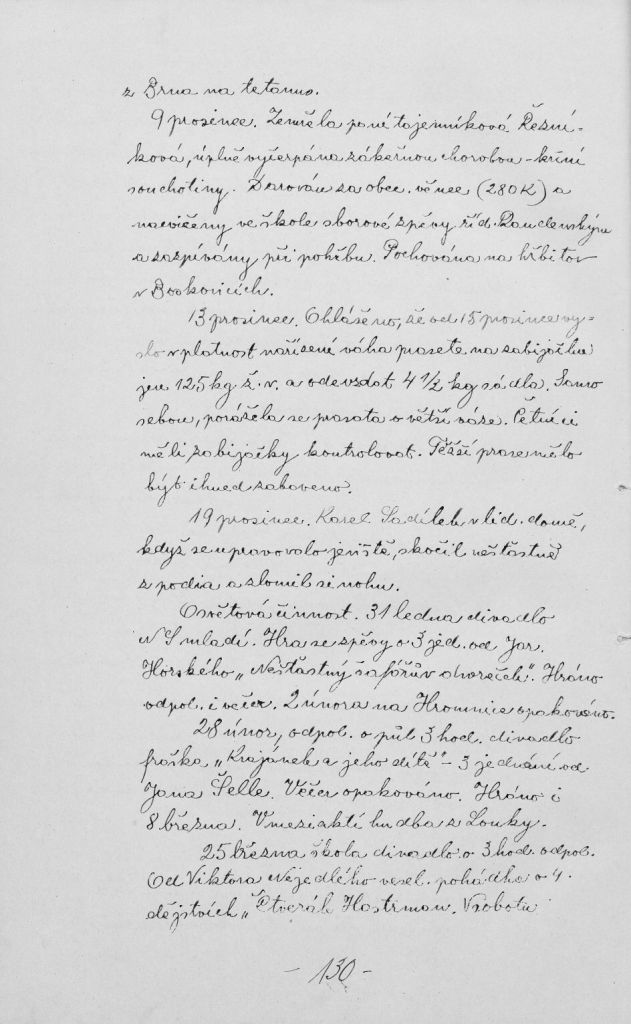 z Brna na tetanus.
9 prosince. Zemřela paní tajemníková Řezní-
ková, úplně vyčerpána zákeřnou chorobou - krční
souchotiny. Darován za obec věnec (280K) a
nacvičeny ve škole sborové zpěvy říd.
a zazpívány při pohřbu. Pochována na hřbitov
v Boskovicích.
13 prosince. Ohlášeno, že od 15 prosince vy-
šlo v platnost nařízení váha prasete na zabijačku
jen 125 kg ž.v. a odevzdat 4 1/2 kg sádla. Samo
sebou, porážela se prasata o větší váze. Četníci
měli zabijačky kontrolovat. Těžší prase mělo
být ihned zabaveno.
19 prosince. Karel Sadílek v lid. domě,
když se upravovalo jeviště, skočil nešťastně
z podia a zlomil si nohu.
Osvětová činnost. 31 ledna divadlo
N S mladí. Hra se zpěvy o 3 jed. od Jar.
Horského „Nešťastný šafářův dvoreček". Hráno
odpol. i večer. 2 února na Hromnice opakováno.
28 únor, odpol. o půl 3 hod. divadlo
fraška „Krajánek a jeho dítě" - 3 jednání od
Jana Šelle. Večer opakováno. Hráno i
8 března. V meziaktí hudba z Louky.
25 března škola divadlo o 3 hod. odpol.
Od Viktora Nejedlého vesel. pohádka o 4.
dějstvích „Čtverák Hastrman. V sobotu
- 130 -